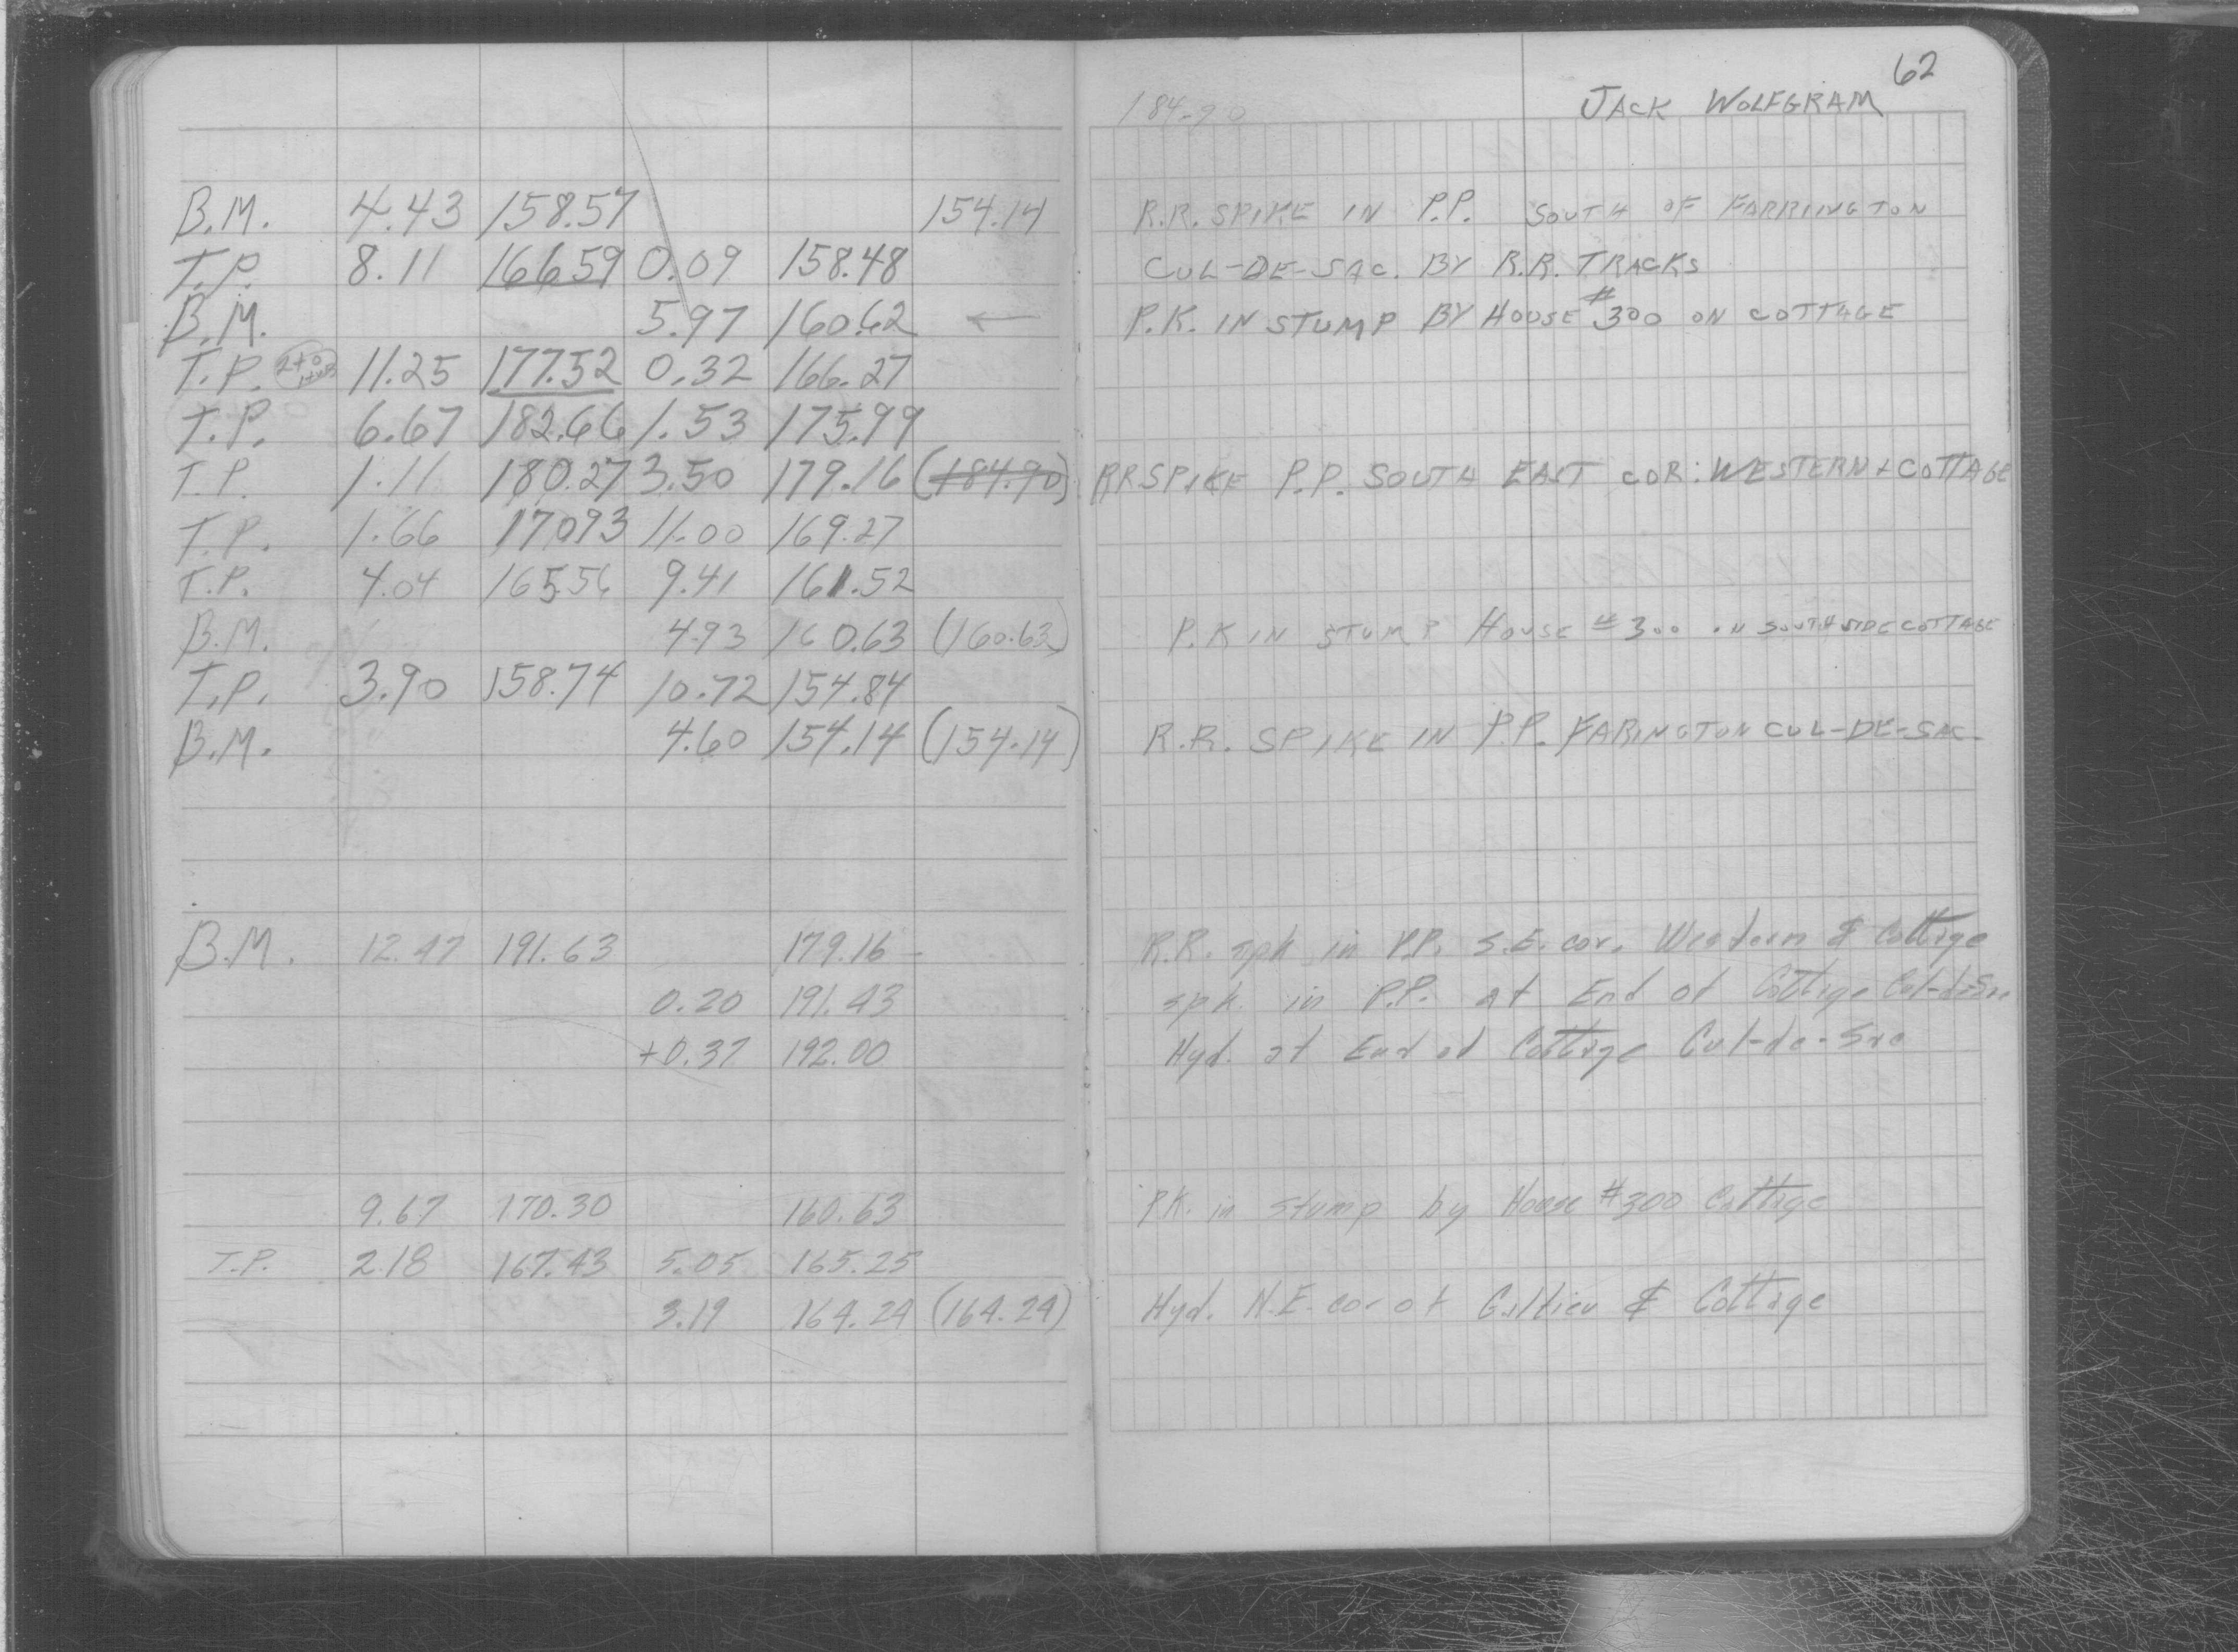 62
184.90 JACK WOLFGRAM
B.M. 4.43 158.57 154.14 R.R. SPIKE IN P.P. SOUTH OF FARRINGTON
T.P. 8.11 166.59 0.09 158.48 CUL-DE-SAC. BY R.R. TRACKS
B.M. 5.97 160.62 ← P.K. IN STUMP BY HOUSE #300 ON COTTAGE
T.P. 11.25 177.52 0.32 166.27
T.P. 6.67 182.66 1.53 175.99
T.P. 1.11 180.27 3.50 179.16 (184.90) RR SPIKE P.P. SOUTH EAST COR: WESTERN + COTTAGE
T.P. 1.66 17093 11.00 169.27
T.P. 4.04 165.56 9.41 161.52
B.M. 4.93 160.63 (160.63) P.K IN STUMP HOUSE #300 ON SOUTH SIDE COTTAGE
T.P. 3.90 158.74 10.72 154.84
B.M. 4.60 154.14 (154.14) R.R. SPIKE IN P.P. FARINGTON CUL-DE-SAC
B.M. 12.47 191.63 179.16 R.R. spk in P.P. S.E. cor. Western & Cottage
0.20 191.43 spk. in P.P. at End of Cottage Cul-de-Sac
+0.37 192.00 Hyd. at End of Cottage Cul-de-Sac
9.67 170.30 160.63 P.K. in stump by House #300 Cottage
T.P. 2.18 167.43 5.05 165.25
3.19 164.24 (164.24) Hyd. N.E. cor of Galtier & Cottage